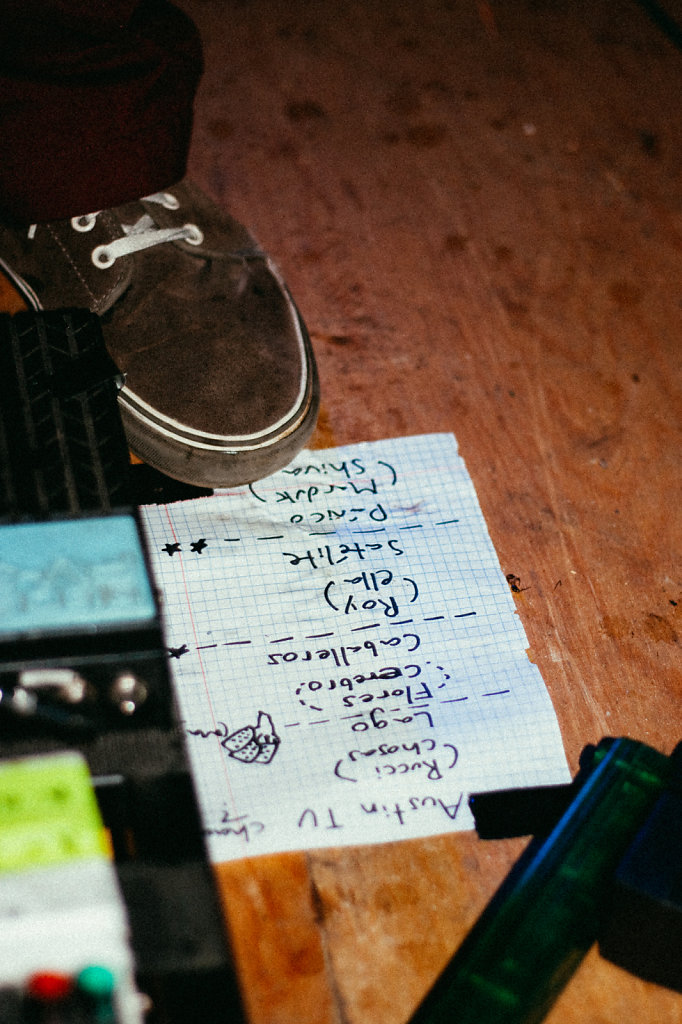 Austin TV
(Rucci)
Chosas
Lago
Flores
cerebro
Caballeros
(Roy)
ella
Satélite
Pánico
Marduk)
(Shiva